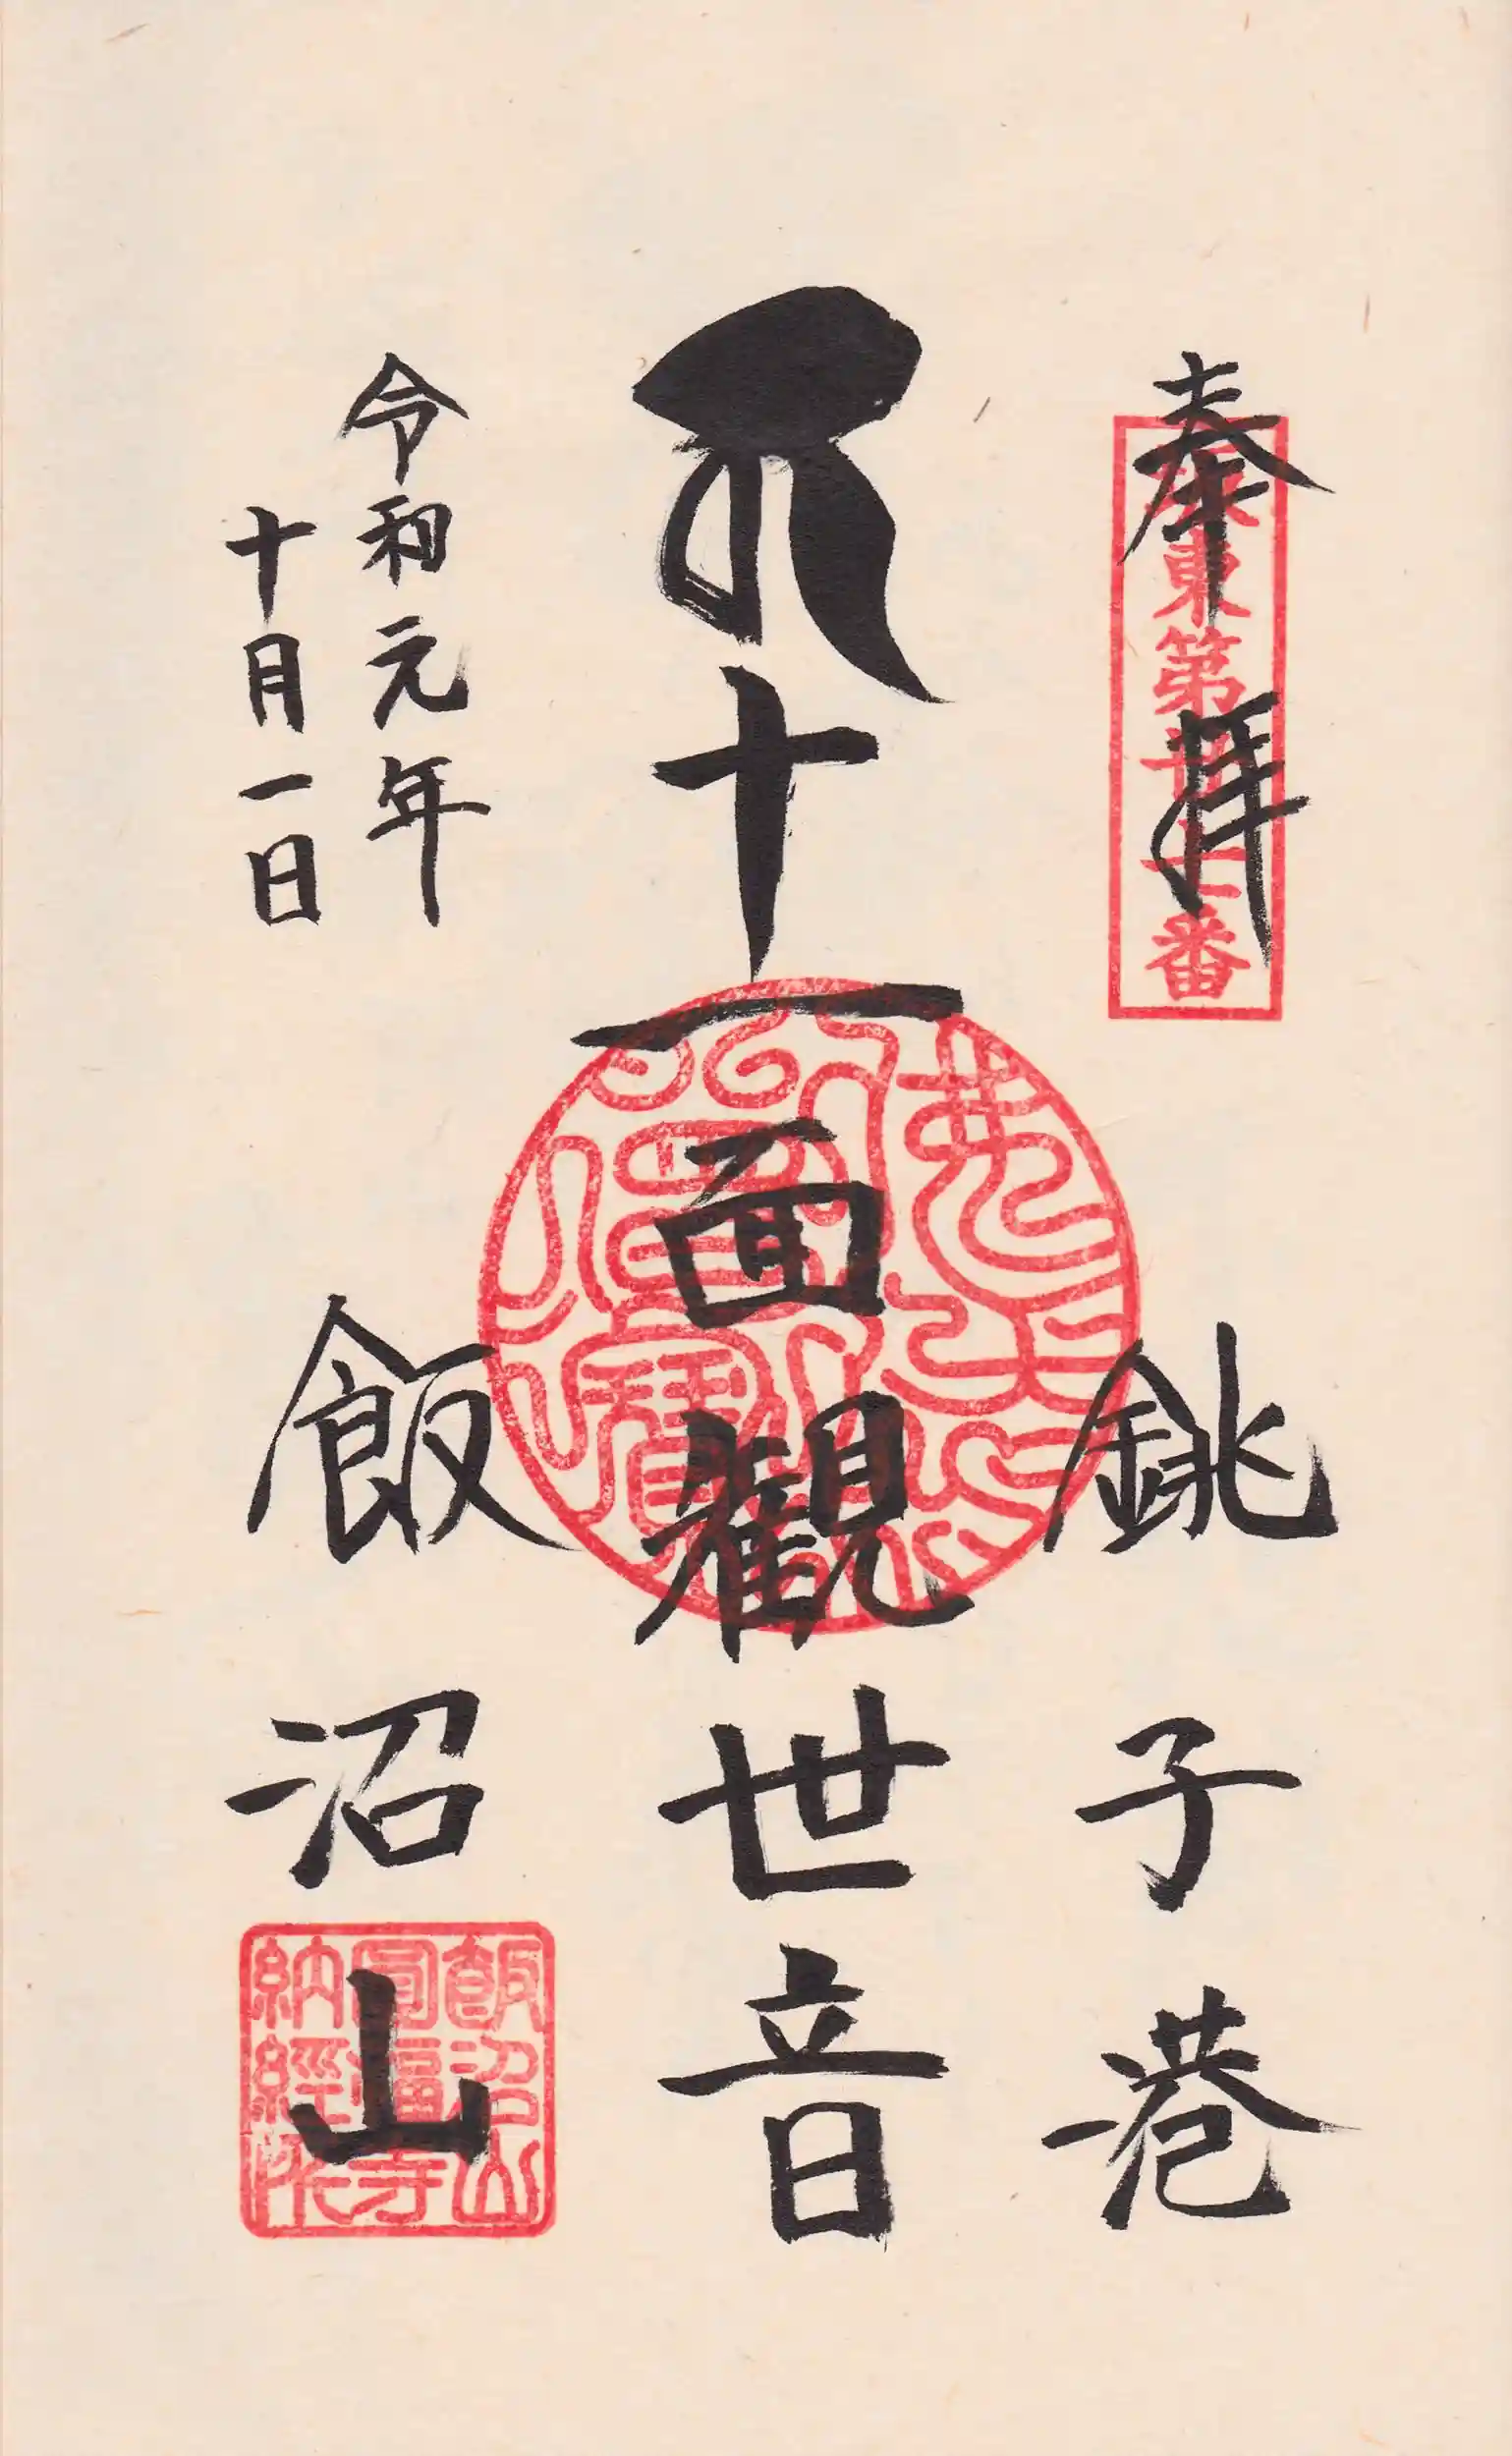 奉拝
坂東第廿七番
銚子港
十一面觀世音
令和元年
十月一日
飯沼山
飯沼山
圓福寺
納經所